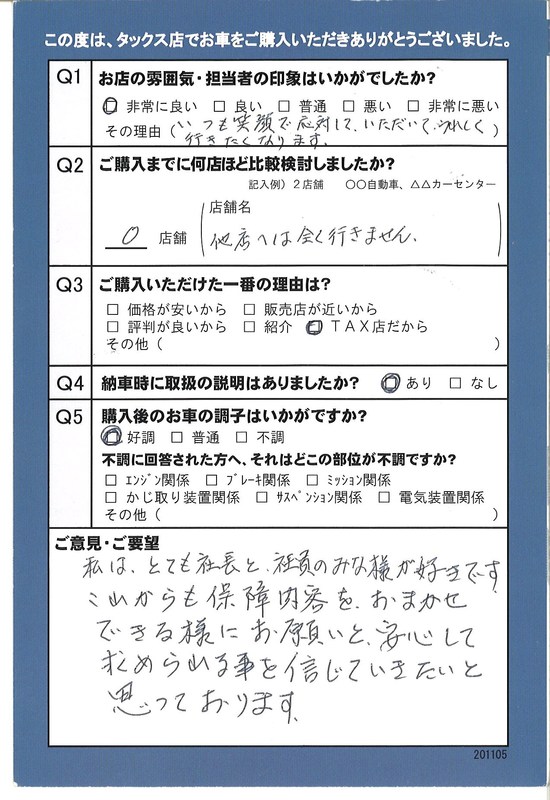 この度は、タックス店でお車をご購入いただきありがとうございました。
Q1 お店の雰囲気・担当者の印象はいかがでしたか?
□ 非常に良い □ 良い □ 普通 □ 悪い □ 非常に悪い
その理由（いつも笑顔で応対して、いただいて、うれしく
行きたくなります。）
Q2 ご購入までに何店ほど比較検討しましたか?
記入例）２店舗 ○○自動車、△△カーセンター
店舗名
0 店舗 他店へは全く行きません。
Q3 ご購入いただけた一番の理由は?
□ 価格が安いから □ 販売店が近いから
□ 評判が良いから □ 紹介 □ ＴＡＸ店だから
その他（ ）
Q4 納車時に取扱の説明はありましたか? □ あり □ なし
Q5 購入後のお車の調子はいかがですか?
□ 好調 □ 普通 □ 不調
不調に回答された方へ、それはどこの部位が不調ですか?
□ ｴﾝｼﾞﾝ関係 □ ﾌﾞﾚｰｷ関係 □ ﾐｯｼｮﾝ関係
□ かじ取り装置関係 □ ｻｽﾍﾟﾝｼｮﾝ関係 □ 電気装置関係
その他（ ）
ご意見・ご要望
私は、とても社長と、社員のみな様が好きです。
これからも保障内容を、おまかせ
できる様にお願いと、安心して
求められる事を信じていきたいと
思っております。
201105